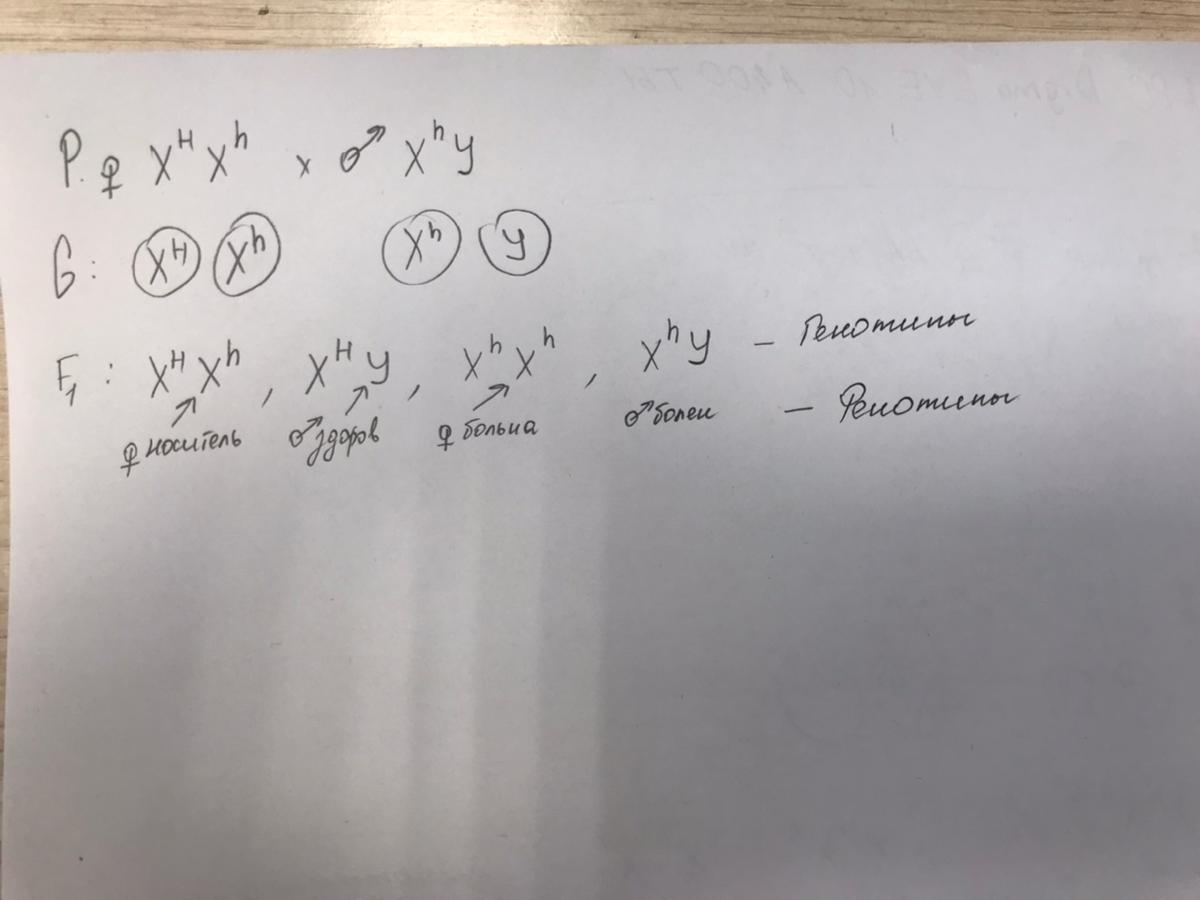 P. ♀ Xᴴ Xʰ × ♂ Xʰ У
G: Xᴴ Xʰ Xʰ У
F₁: Xᴴ Xʰ, Xᴴ У, Xʰ Xʰ, Xʰ У – Генотипы
♀ носитель ♂ здоров ♀ больна ♂ болен – Фенотипы